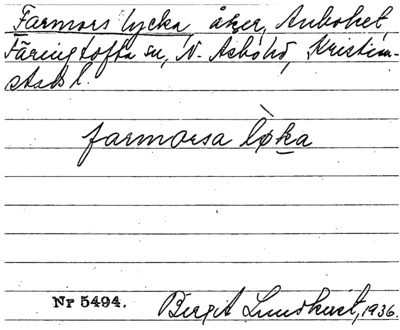 Farmors lycka, åker, Anbohet,
Färingtofta sn, N. Åsbo hd, Kristian-
stads l.
farmorsa lø̀ka
Nr 5494.
Birgit Lundkvist, 1936.